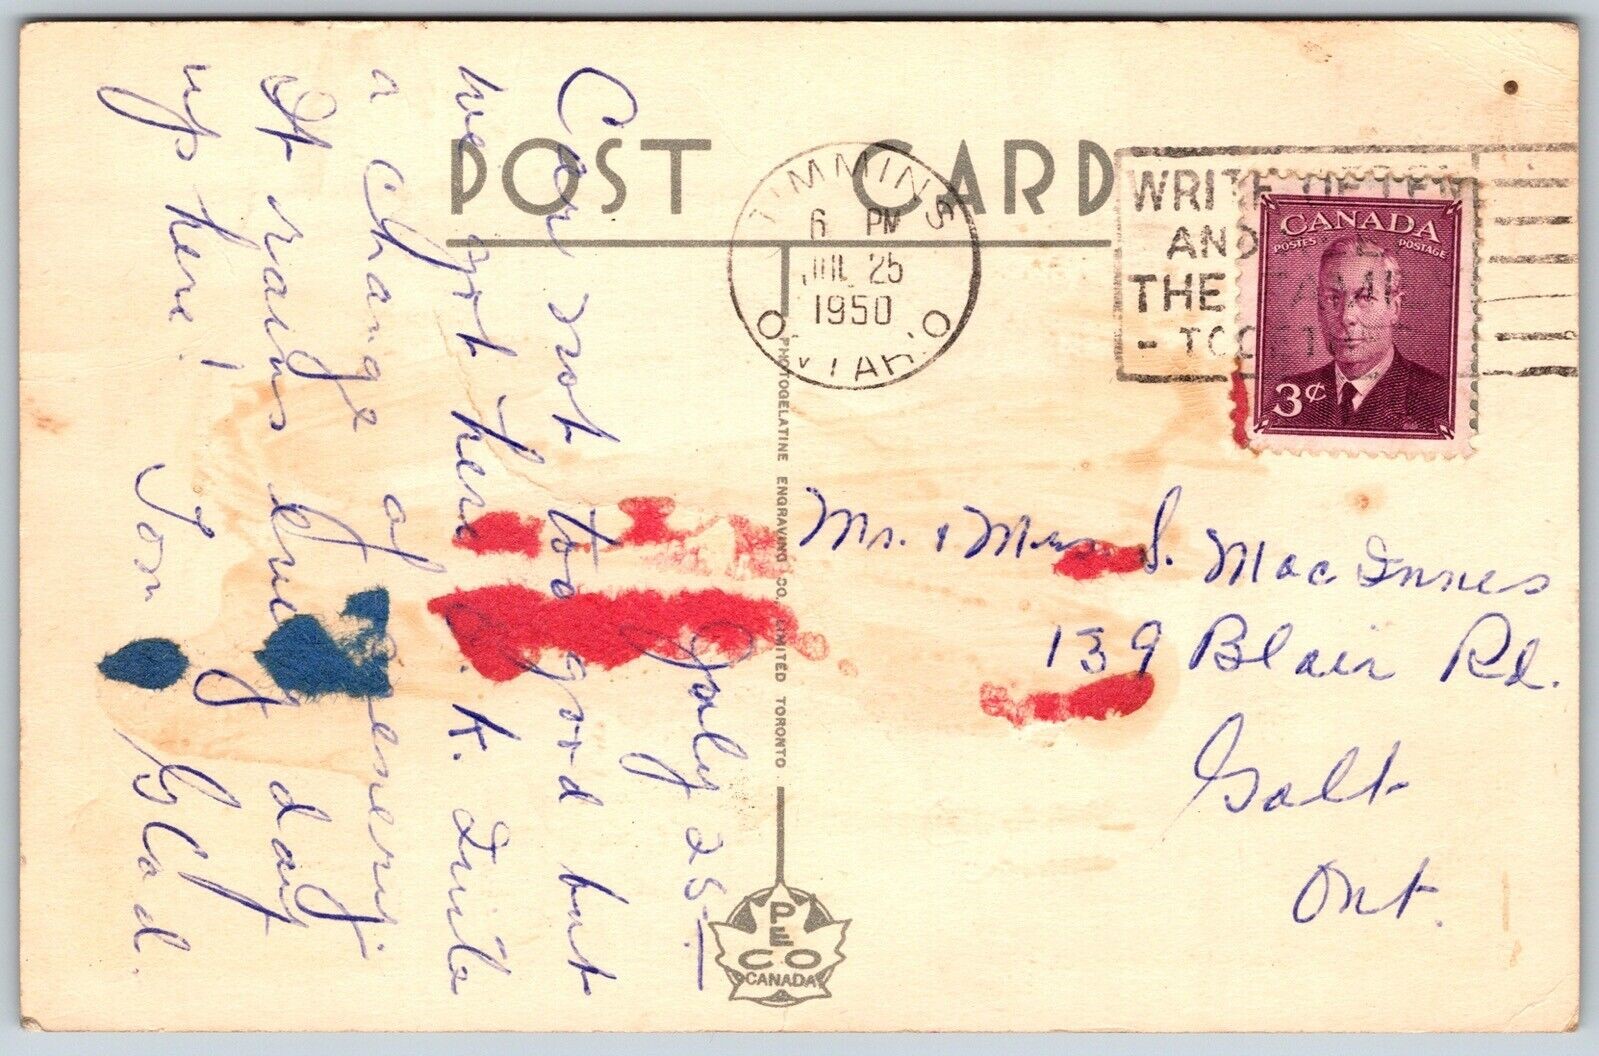 POST CARD
TIMMINS
6 PM
JUL 25
1950
ONTARIO
WRITE OFTEN
AND
THE FAMILY
- TOGETHER
CANADA
POSTES POSTAGE
3¢
July 25 -
Car not too good but
we got here O.K. Quite
a change of scenery.
It rains every day
up here!
Ton Glad.
Mr. & Mrs S. MacInnes
139 Blair Rd.
Galt
Ont.
PHOTOGELATINE ENGRAVING CO. LIMITED TORONTO
PECO
CANADA